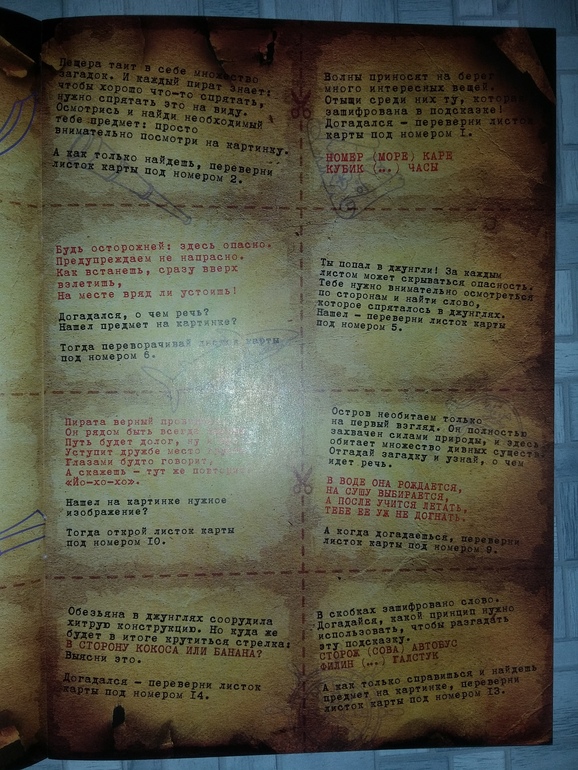 Пещера таит в себе множество
загадок. И каждый пират знает:
чтобы хорошо что-то спрятать,
нужно спрятать это на виду.
Осмотрись и найди необходимый
тебе предмет: просто
внимательно посмотри на картинку.
А как только найдешь, переверни
листок карты под номером 2.
Волны приносят на берег
много интересных вещей.
Отыщи среди них ту, которая
зашифрована в подсказке!
Догадался – переверни листок
карты под номером 1.
НОМЕР (МОРЕ) КАРЕ
КУБИК (...) ЧАСЫ
Будь осторожней: здесь опасно.
Предупреждаем не напрасно.
Как встанешь, сразу вверх
взлетишь,
На месте вряд ли устоишь!
Догадался, о чем речь?
Нашел предмет на картинке?
Тогда переворачивай листок карты
под номером 6.
Ты попал в джунгли! За каждым
листом может скрываться опасность.
Тебе нужно внимательно осмотреться
по сторонам и найти слово,
которое спряталось в джунглях.
Нашел – переверни листок карты
под номером 5.
Пирата верный
Он рядом быть всегда
Путь будет долог, ну
Уступит дружбе место
Глазами будто говорит,
А скажешь – тут же
«Йо-хо-хо».
Нашел на картинке нужное
изображение?
Тогда открой листок карты
под номером 10.
Остров необитаем только
на первый взгляд. Он полностью
захвачен силами природы, и здесь
обитает множество дивных существ.
Отгадай загадку и узнай, о чем
идет речь.
В ВОДЕ ОНА РОЖДАЕТСЯ,
НА СУШУ ВЫБИРАЕТСЯ,
А ПОСЛЕ УЧИТСЯ ЛЕТАТЬ,
ТЕБЕ ЕЕ УЖ НЕ ДОГНАТЬ.
А когда догадаешься, переверни
листок карты под номером 9.
Обезьяна в джунглях соорудила
хитрую конструкцию. Но куда же
будет в итоге крутиться стрелка:
В СТОРОНУ КОКОСА ИЛИ БАНАНА?
Выясни это.
Догадался – переверни листок
карты под номером 14.
В скобках зашифровано слово.
Догадайся, какой принцип нужно
использовать, чтобы разгадать
эту подсказку.
СТОРОЖ (СОВА) АВТОБУС
ФИЛИН (...) ГАЛСТУК
А как только справишься и найдешь
предмет на картинке, переверни
листок карты под номером 13.